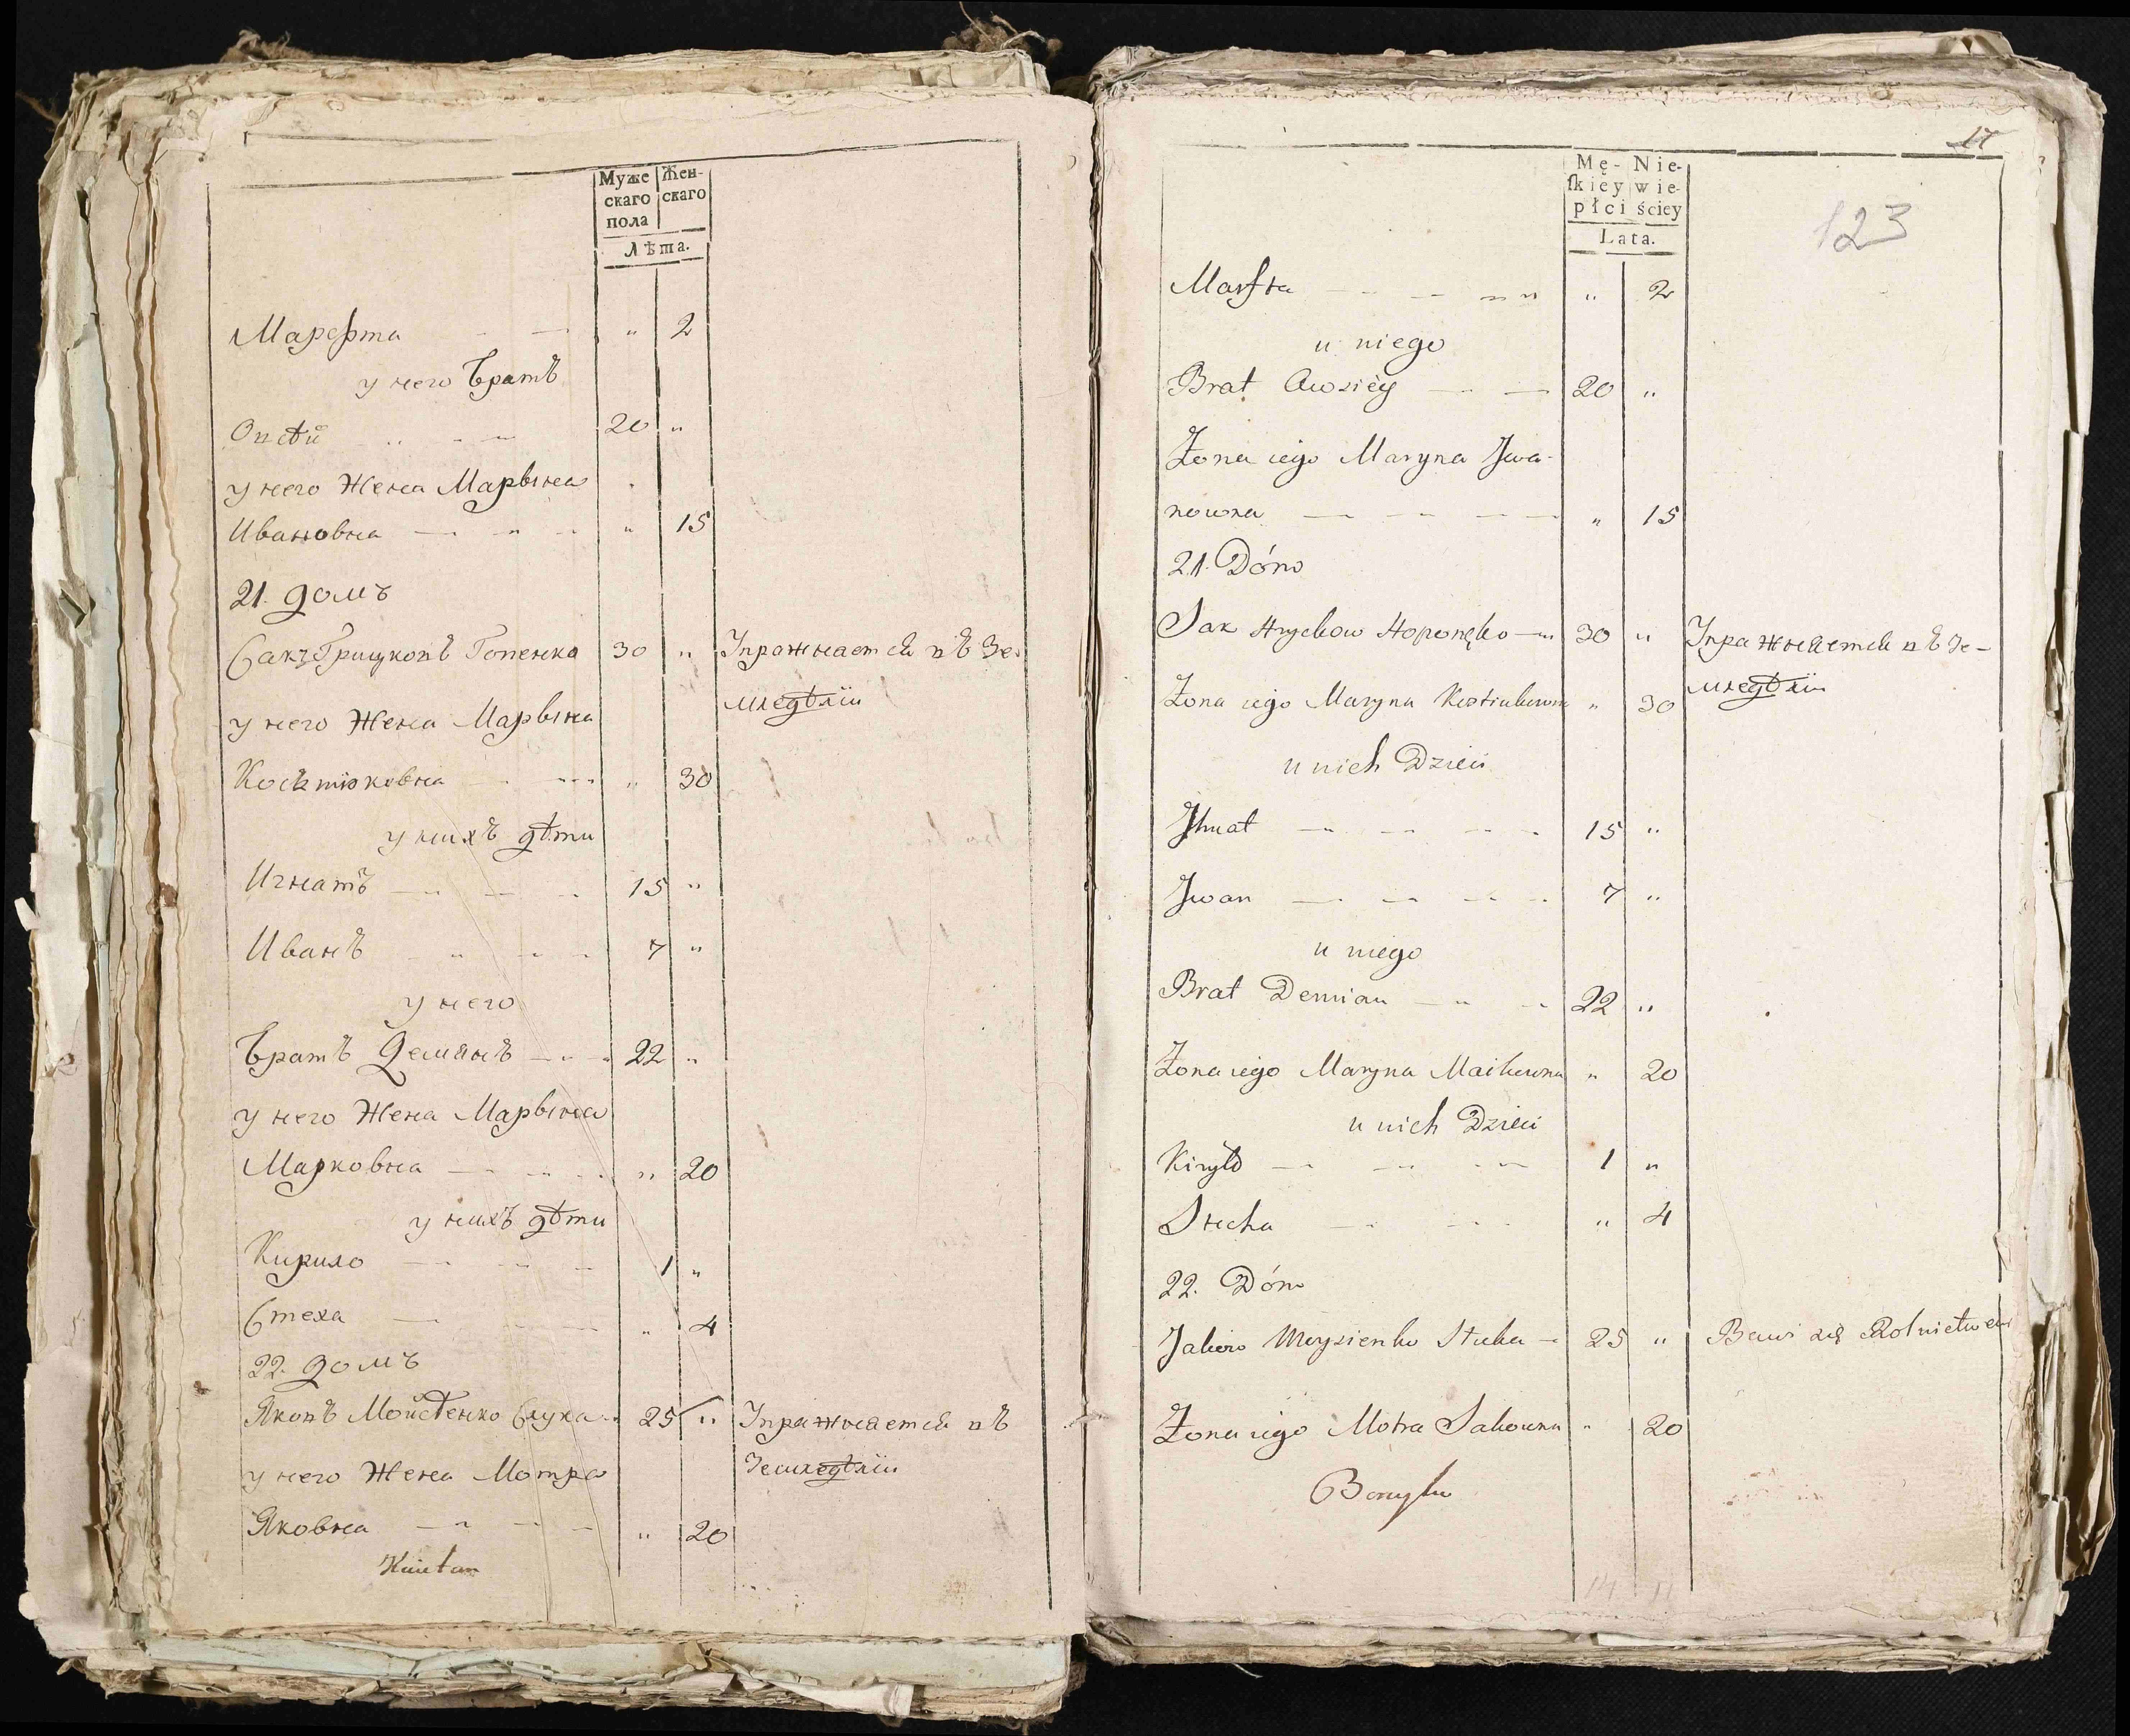 Муже Жен-
скаго скаго
пола
Лѣта.
Марфта " 2
у него Братъ
Овсѣй 20 "
у него Жена Марына
Ивановна " 15
21. домъ
Сакъ Грицковъ Гопенко 30 " Упражнается въ Зе-
мледѣліи
у него Жена Марына
Косьтюковна " 30
у нихъ дѣти
Игнатъ 15 "
Иванъ 7 "
у него
Братъ Демянъ 22 "
у него Жена Марына
Марковна " 20
у нихъ дѣти
Кирило 1 "
Стеха " 4
22. домъ
Яковъ Мойсѣенко 25 " Упражнается въ
Земледѣліи
у него Жена Мотра
Яковна " 20
17
Mę- Nie-
ſkiey wie-
płci ściey
Lata.
123
Marfta " 2
u niego
Brat Awsiey 20 "
Żona iego Maryna Jwa-
nowna " 15
21. Dóm
Sak Hryckow Hoponęko 30 " Упражнается въ Зе-
мледѣліи
Żona iego Maryna Kostiukowna " 30
u nich Dzieci
Jhnat 15 "
Jwan 7 "
u niego
Brat Demian 22 "
Żona iego Maryna Markowna " 20
u nich Dzieci
Kiryło 1 "
Stecha " 4
22. Dóm
Jakow Moysienko Stuka 25 " Bawi się Rolnictwem
Żona iego Motra Jakowna " 20
14 11